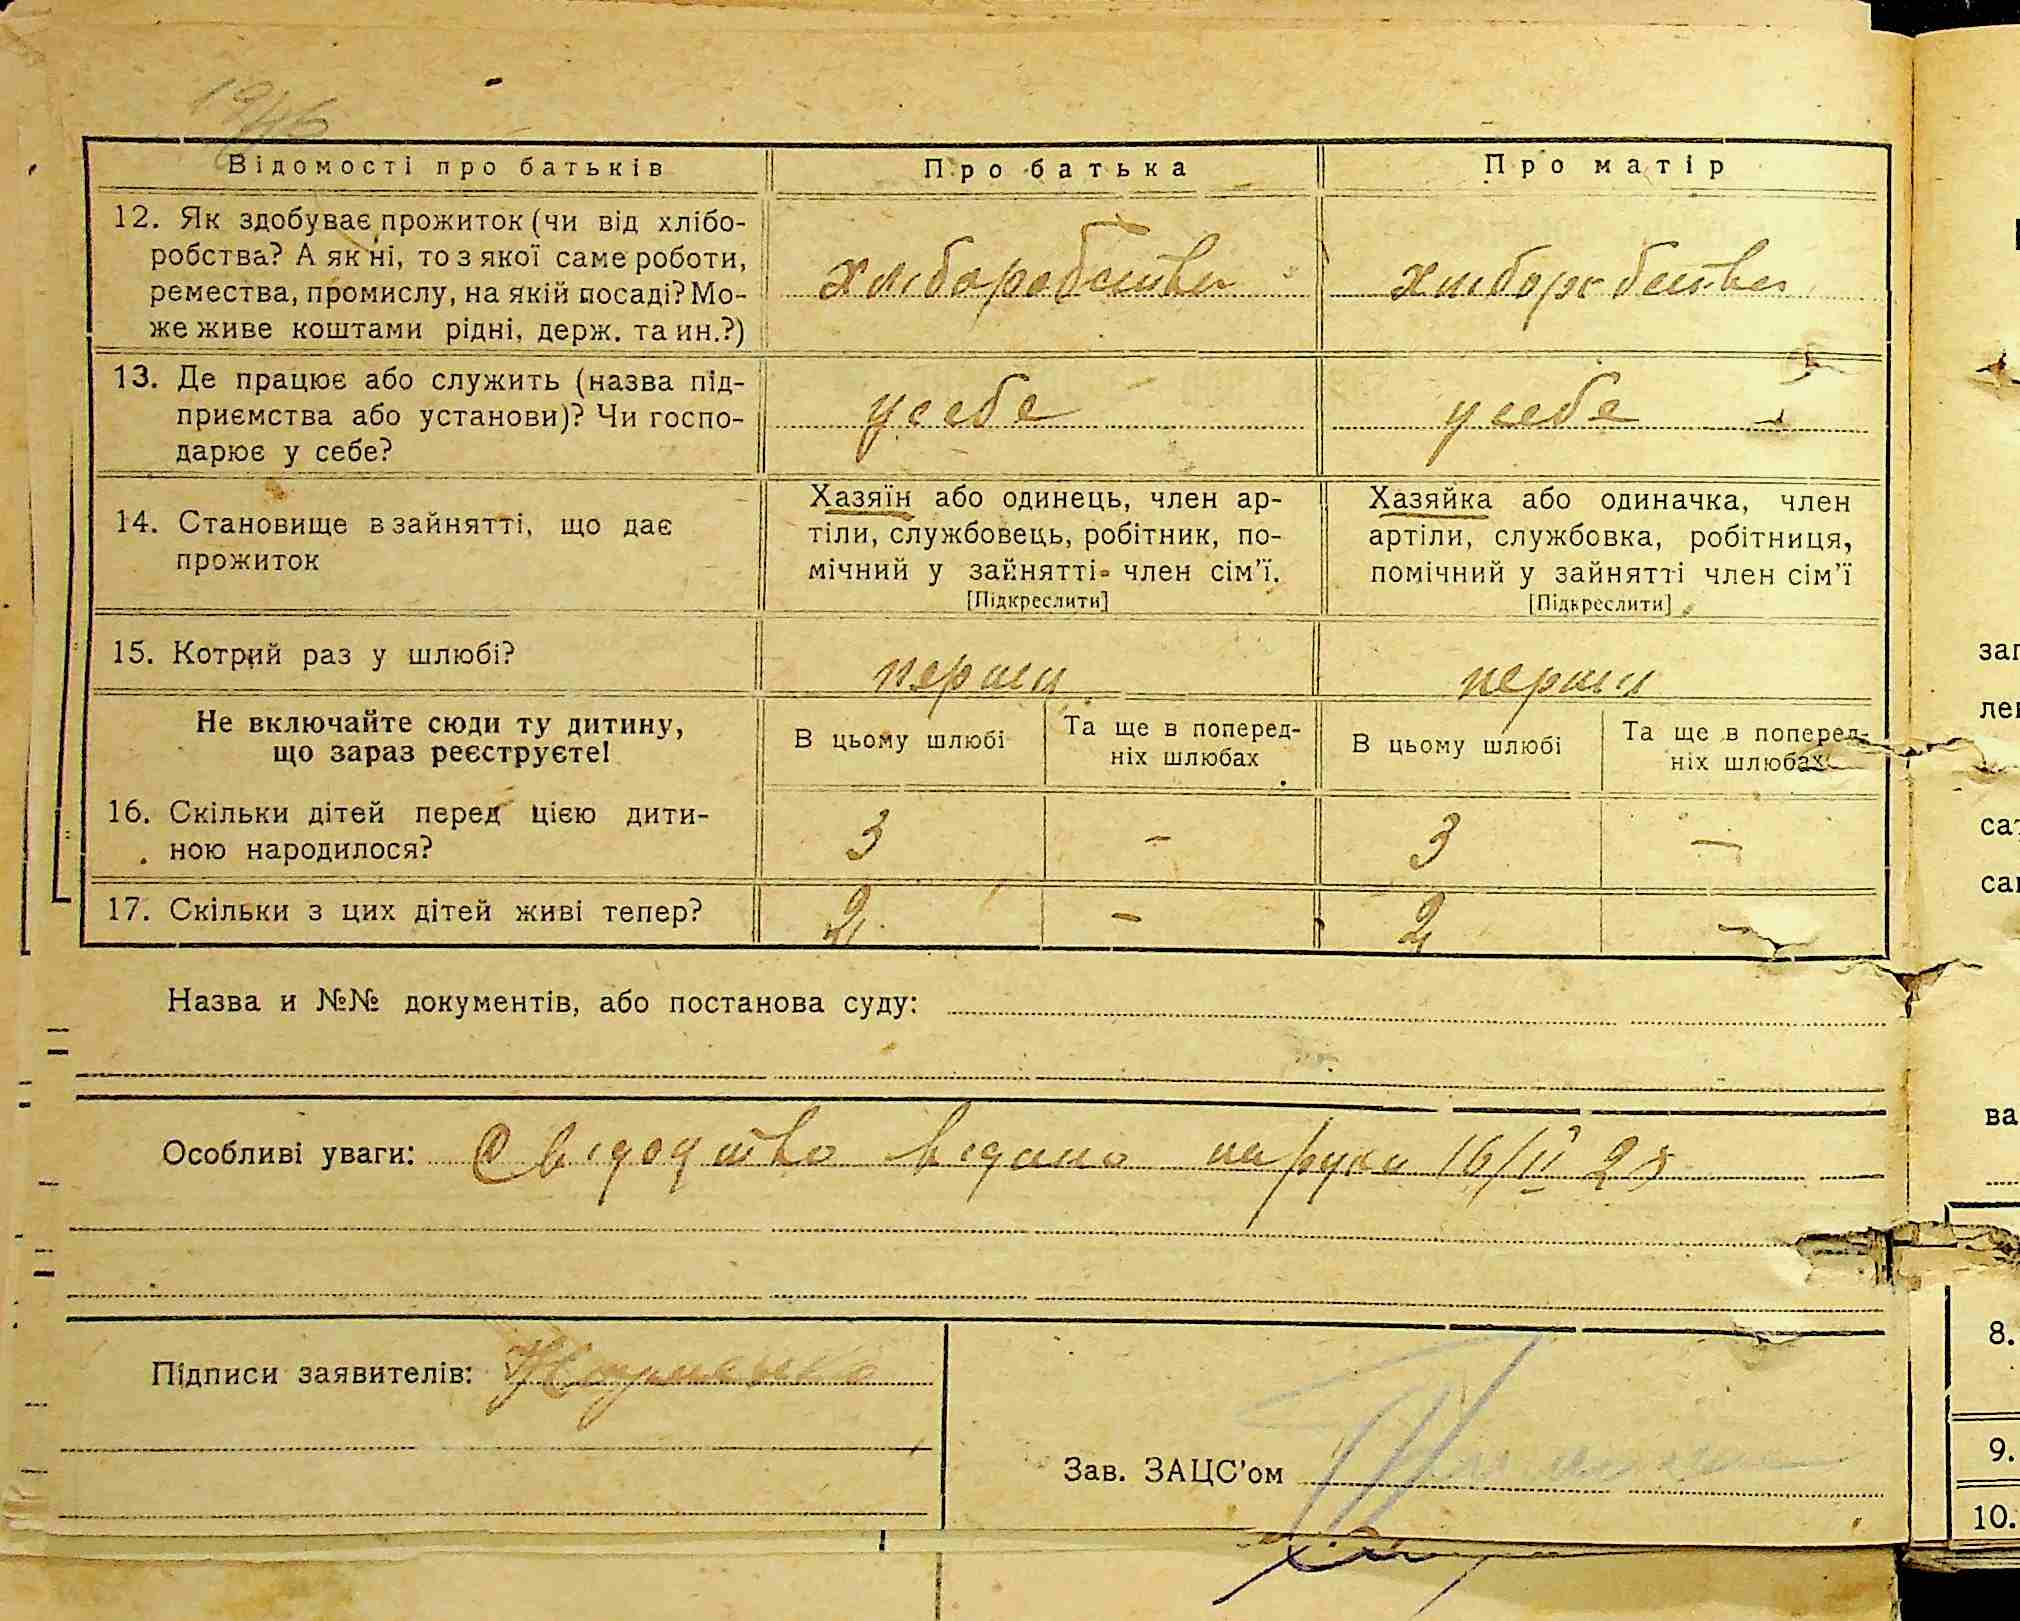 Відомості про батьків
Про батька
Про матір
12. Як здобуває прожиток (чи від хлібо-
робства? А як ні, то з якої саме роботи,
ремества, промислу, на якій посаді? Мо-
же живе коштами рідні, держ. та ин.?)
хліборобства
хліборобства
13. Де працює або служить (назва під-
приємства або установи)? Чи госпо-
дарює у себе?
у себе
у себе
14. Становище в зайнятті, що дає
прожиток
Хазяїн або одинець, член ар-
тіли, службовець, робітник, по-
мічний у зайнятті член сім'ї.
[Підкреслити]
Хазяйка або одиначка, член
артіли, службовка, робітниця,
помічний у зайнятті член сім'ї
[Підкреслити]
15. Котрий раз у шлюбі?
перший
перший
Не включайте сюди ту дитину,
що зараз реєструєте!
В цьому шлюбі
Та ще в поперед-
ніх шлюбах
В цьому шлюбі
Та ще в поперед-
ніх шлюбах
16. Скільки дітей перед цією дити-
ною народилося?
3
-
3
-
17. Скільки з цих дітей живі тепер?
2
-
2
-
Назва и №№ документів, або постанова суду:
Особливі уваги: Свідоцтво видано на руки 16/II 28
Підписи заявителів:
Зав. ЗАЦС'ом
заг
лен
сат
сам
ва
8.
9.
10.